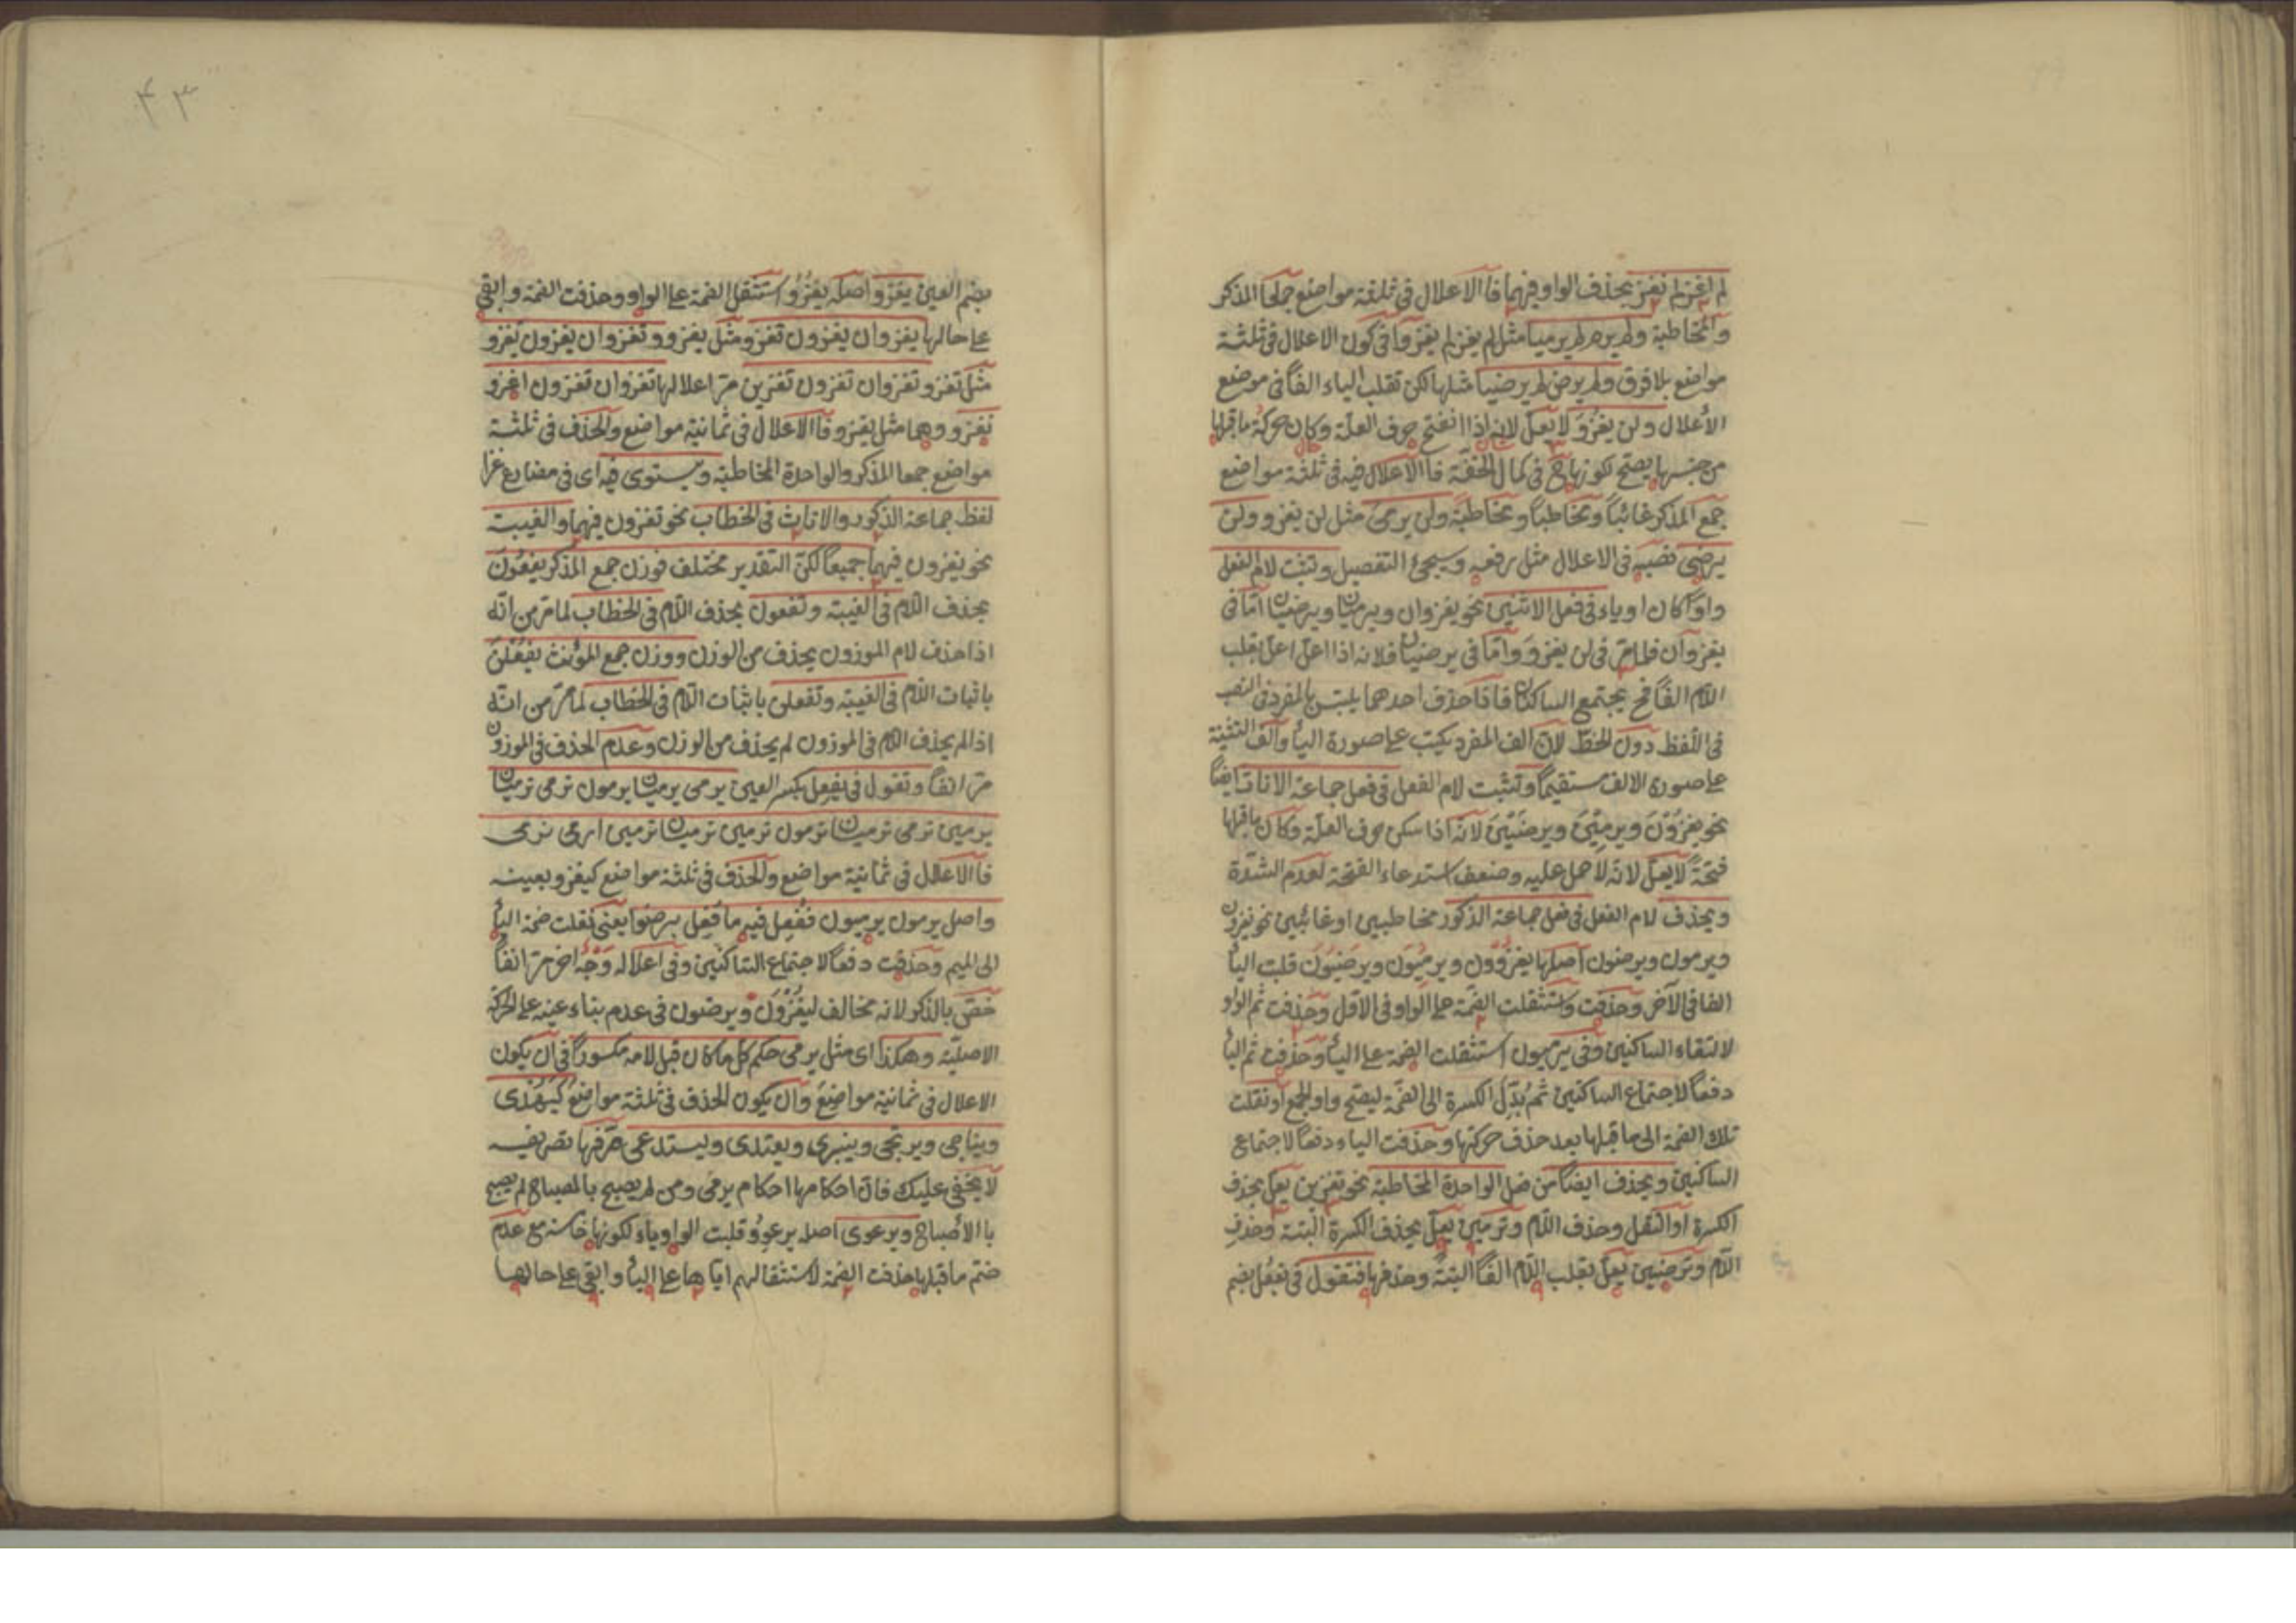 لم اغز لم نغز بحذف الواو فيهما فالاعلال في ثلثة مواضع جمعا المذكر
والمخاطبة ولم يرم لم يرميا مثل لم يغز لم يغزوا في كون الاعلال في ثلثة
مواضع بلا فرق ولم يرض لم يرضيا مثلها لكن تقلب الياء الفاً في موضع
الأعلال ولن يغزوَ لا يعلّ لانه اذا انفتح حرف العلّة وكان حركة ما قبلها
من جنسها يصحّ لكونها ح في كمال الخفّة فالاعلال فيه في ثلثة مواضع
جمع المذكر غائباً ومخاطباً ومخاطبةً ولن يرمىَ مثل لن يغزو ولن
يرضى نصبه في الاعلال مثل رفعه وسيجئ التفصيل وتثبت لام الفعل
واوًا كان او ياء في فعل الاثنين نحو يغزوان ويرميان ويرضيان امّا في
يغزوان فلما مرّ في لن يغزوَ وامّا في يرضيان فلانه اذا اعلّ اعلّ بقلب
اللام الفًا فح يجتمع الساكنان فاذا حذف احدهما يلتبس بالمفرد في النصب
في اللفظ دون الخطّ لانّ الف المفرد يكتب على صورة اليأ والف التثنية
على صورة الالف مستقيمًا وتثبت لام الفعل في فعل جماعة الاناث ايضًا
نحو يغزُوْنَ ويرمِيْنَ ويرضَيْنَ لانّه اذا سكن حرف العلّة وكان ما قبلها
فتحةً لا يعلّ لانّه لا حمل عليه وضعف استدعاء الفتحة لعدم الشدّة
ويحذف لام الفعل في فعل جماعة الذكور مخاطبين او غائبين نحو يغزون
ويرمون ويرضون اصلها يغزوُون ويرمِيُون ويرضَيُون قلبت اليأ
الفا في الآخر وحذفت واستثقلت الضمّة على الواو في الاوّل وحذفت ثم الواو
لالتقاء الساكنين وفي يرميون استثقلت الضمة على اليأ وحذفت ثم اليأ
دفعاً لاجتماع الساكنين ثم بُدّل الكسرة الى الضمّة ليصحّ واو الجمع او نقلت
تلك الضمة الى ما قبلها بعد حذف حركتها وحذفت الياء دفعًا لاجتماع
الساكنين ويحذف ايضًا من فعل الواحدة المخاطبة نحو تغزين يعلّ بحذف
الكسرة او النقل وحذف اللام وترمين يعلّ بحذف الكسرة البتة وحذف
اللام وترضين يعلّ بقلب اللام الفاً البتةَ وحذفها فتقول في يفعُل بضم
۴۳
بضم العين يغزو اصله يغزُوُ استثقل الضمة على الواو وحذفت الضمة وابقي
على حالها يغزوان يغزون تغزو مثل يغزو وتغزوان يغزون تغزو
مثل تغزو تغزوان تغزون تغزين مرّ اعلالها تغزوان تغزون اغزو
نغزو وهما مثل يغزو فالاعلال في ثمانية مواضع والحذف في ثلثة
مواضع جمعا المذكر والواحدة المخاطبة ويستوى فيه اى في مضارع غزا
لفظ جماعة الذكور والاناث في الخطاب نحو تغزون فيهما والغيبت
نحو يغزون فيهما جميعاً لكنّ التقدير مختلف فوزن جمع المذكر يفعُونَ
بحذف اللام في الغيبة وتفعون بحذف اللام في الخطاب لما مرّ من انّه
اذا حذف لام الموزون يحذف من الوزن ووزن جمع المؤنث يفعُلنَ
باثبات اللام في الغيبة وتفعلن باثبات اللام في الخطاب لما مرّ من انّه
اذا لم يحذف اللام في الموزون لم يحذف من الوزن وعدم الحذف في الموزون
مرّ انفًا وتقول في يفعِل بكسر العين يرمى يرميان يرمون ترمى ترميان
يرمين ترمى ترميان ترمون ترمين ترميان ترمين ارمى نرمى
فالاعلال في ثمانية مواضع والحذف في ثلثة مواضع كيغزو بعينه
واصل يرمون يرميون ففُعِل فيه ما فُعِل برضوا يعنى نقلت ضمة اليأ
الى الميم وحذفت دفعًا لاجتماع الساكنين وفي اعلاله وَجْهٌ اخر مرّ انفاً
خصّ بالذكر لانه مخالف ليغزُوْن ويرضون في عدم بناء عينه على الحركة
الاصليّة وهكذا اى مثل يرمى حكم كلّ ما كان قبل لامه مكسورًا في ان يكون
الاعلال في ثمانية مواضعَ وان يكون الحذف في ثلثة مواضع كيُهْدى
ويناجى ويرتجى وينبرى ويعتدى ويستدعى صرّفها تصريفه
لا يخفى عليك فانّ احكامها احكام يرمى ومن لم يصبح بالمصباح لم يصبح
بالأصباح ويرعوى اصله يرعوِوُ قلبت الواو ياء لكونها خامسة مع عدم
ضمّ ما قبلها حذفت الضمة لاستثقالهم ايّاها على اليأ وابقى على حالها